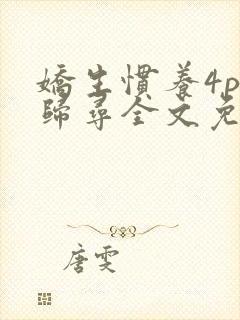 嬌生慣養4p
歸尋全文免
唐雯